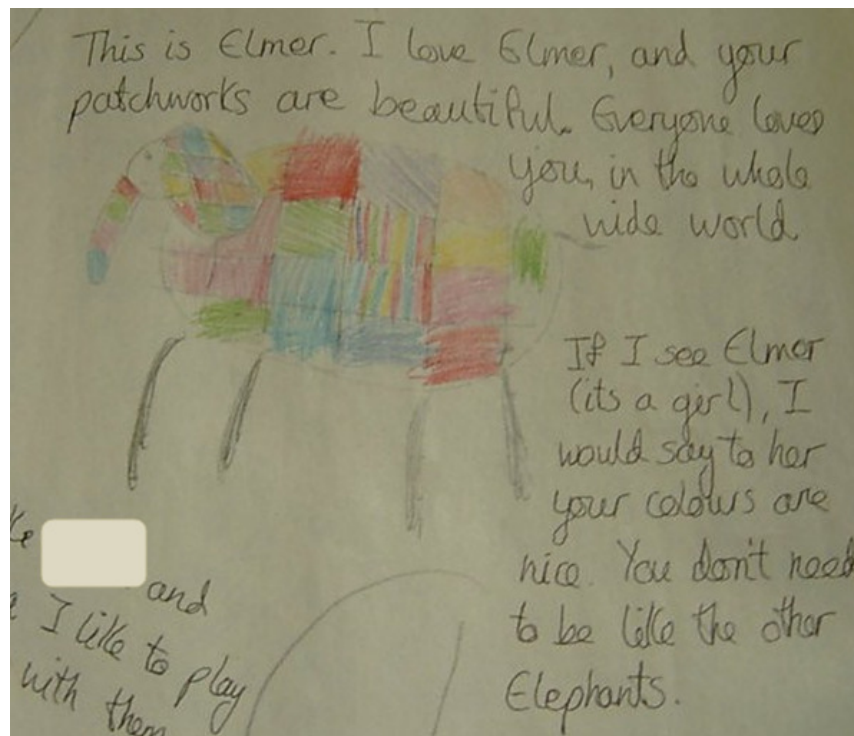 This is Elmer. I love Elmer, and your
patchworks are beautiful. Everyone loves
you, in the whole
wide world.
If I see Elmer
(its a girl), I
would say to her
your colours are
nice. You don't need
to be like the other
Elephants.
and
I like to play
with them